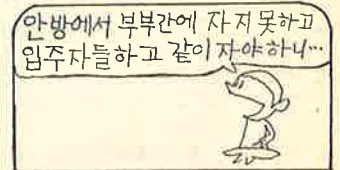 안방에서 부부간에 자지 못하고
입주자들하고 같이 자야하니…